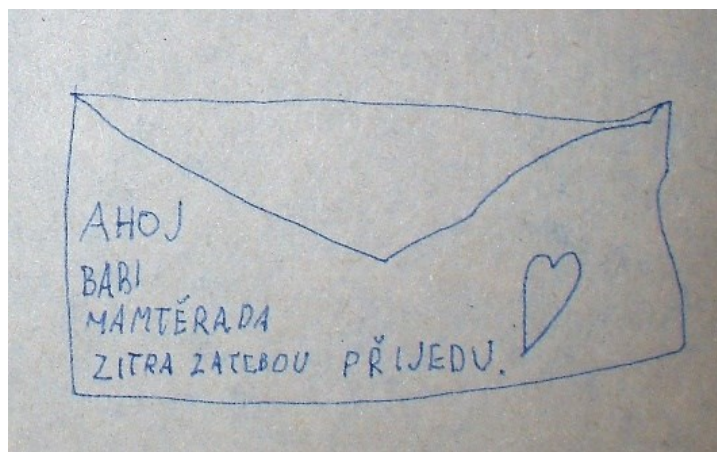 AHOJ
BABI
MÁMTĚRADA
ZITRA ZATEBOU PŘIJEDU.